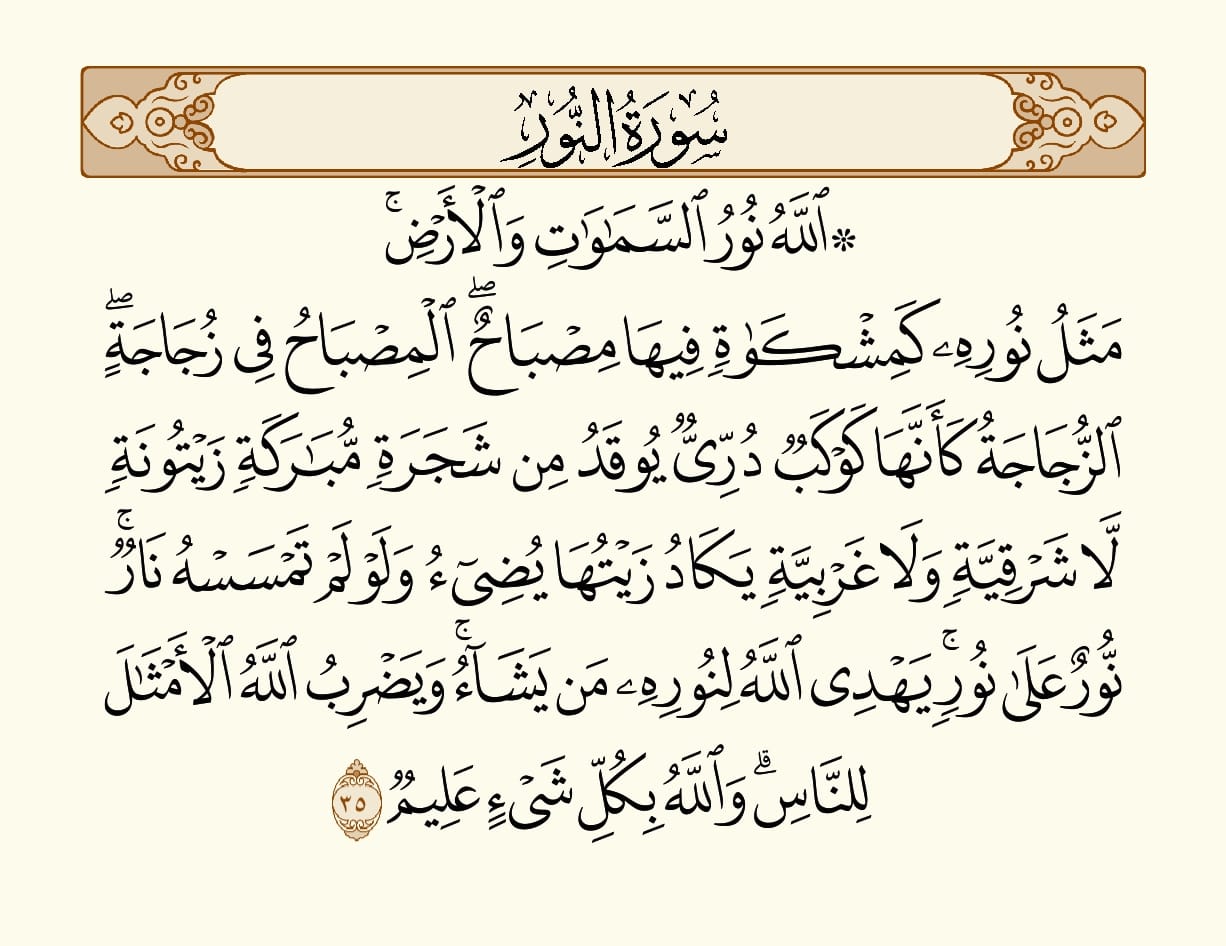 سُورَةُ النُّورِ
۞ ٱللَّهُ نُورُ ٱلسَّمَٰوَٰتِ وَٱلۡأَرۡضِۚ
مَثَلُ نُورِهِۦ كَمِشۡكَوٰةٖ فِيهَا مِصۡبَاحٌۖ ٱلۡمِصۡبَاحُ فِي زُجَاجَةٍۖ
ٱلزُّجَاجَةُ كَأَنَّهَا كَوۡكَبٞ دُرِّيّٞ يُوقَدُ مِن شَجَرَةٖ مُّبَٰرَكَةٖ زَيۡتُونَةٖ
لَّا شَرۡقِيَّةٖ وَلَا غَرۡبِيَّةٖ يَكَادُ زَيۡتُهَا يُضِيٓءُ وَلَوۡ لَمۡ تَمۡسَسۡهُ نَارٞۚ
نُّورٌ عَلَىٰ نُورٖۚ يَهۡدِي ٱللَّهُ لِنُورِهِۦ مَن يَشَآءُۚ وَيَضۡرِبُ ٱللَّهُ ٱلۡأَمۡثَٰلَ
لِلنَّاسِۗ وَٱللَّهُ بِكُلِّ شَيۡءٍ عَلِيمٞ ٣٥